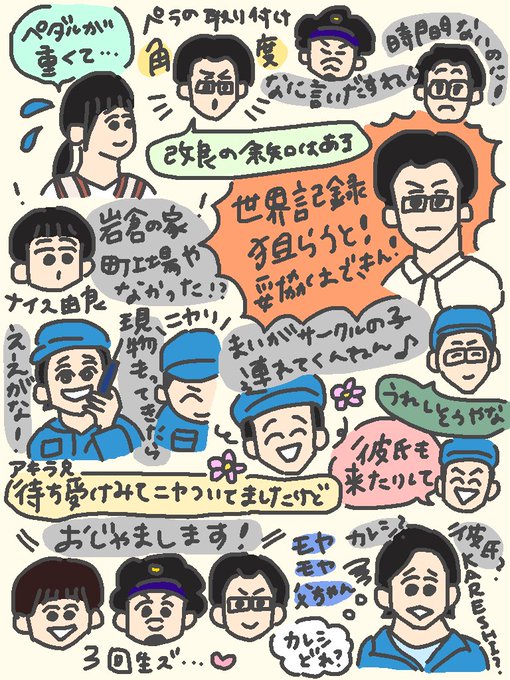 ペダルが
重くて…
ペラの取り付け
角度
なに言いだすねん
時間ないのに!
改良の余知はある
世界記録
狙らうと!
妥協はできん!
岩倉の家
町工場や
なかった!?
ナイス由良
ニヤリ
現物もってきたら
ええがな!
まいがサークルの子
連れてくんねん♪
うれしそうやな
彼氏も
来たりして
アキラ兄
待ち受けみてニヤついてましたけど
おじゃまします!
3回生ズ…
モヤ
モヤ
父ちゃん
カレシ?
彼氏?
KARESHI?
カレシ
どれ?